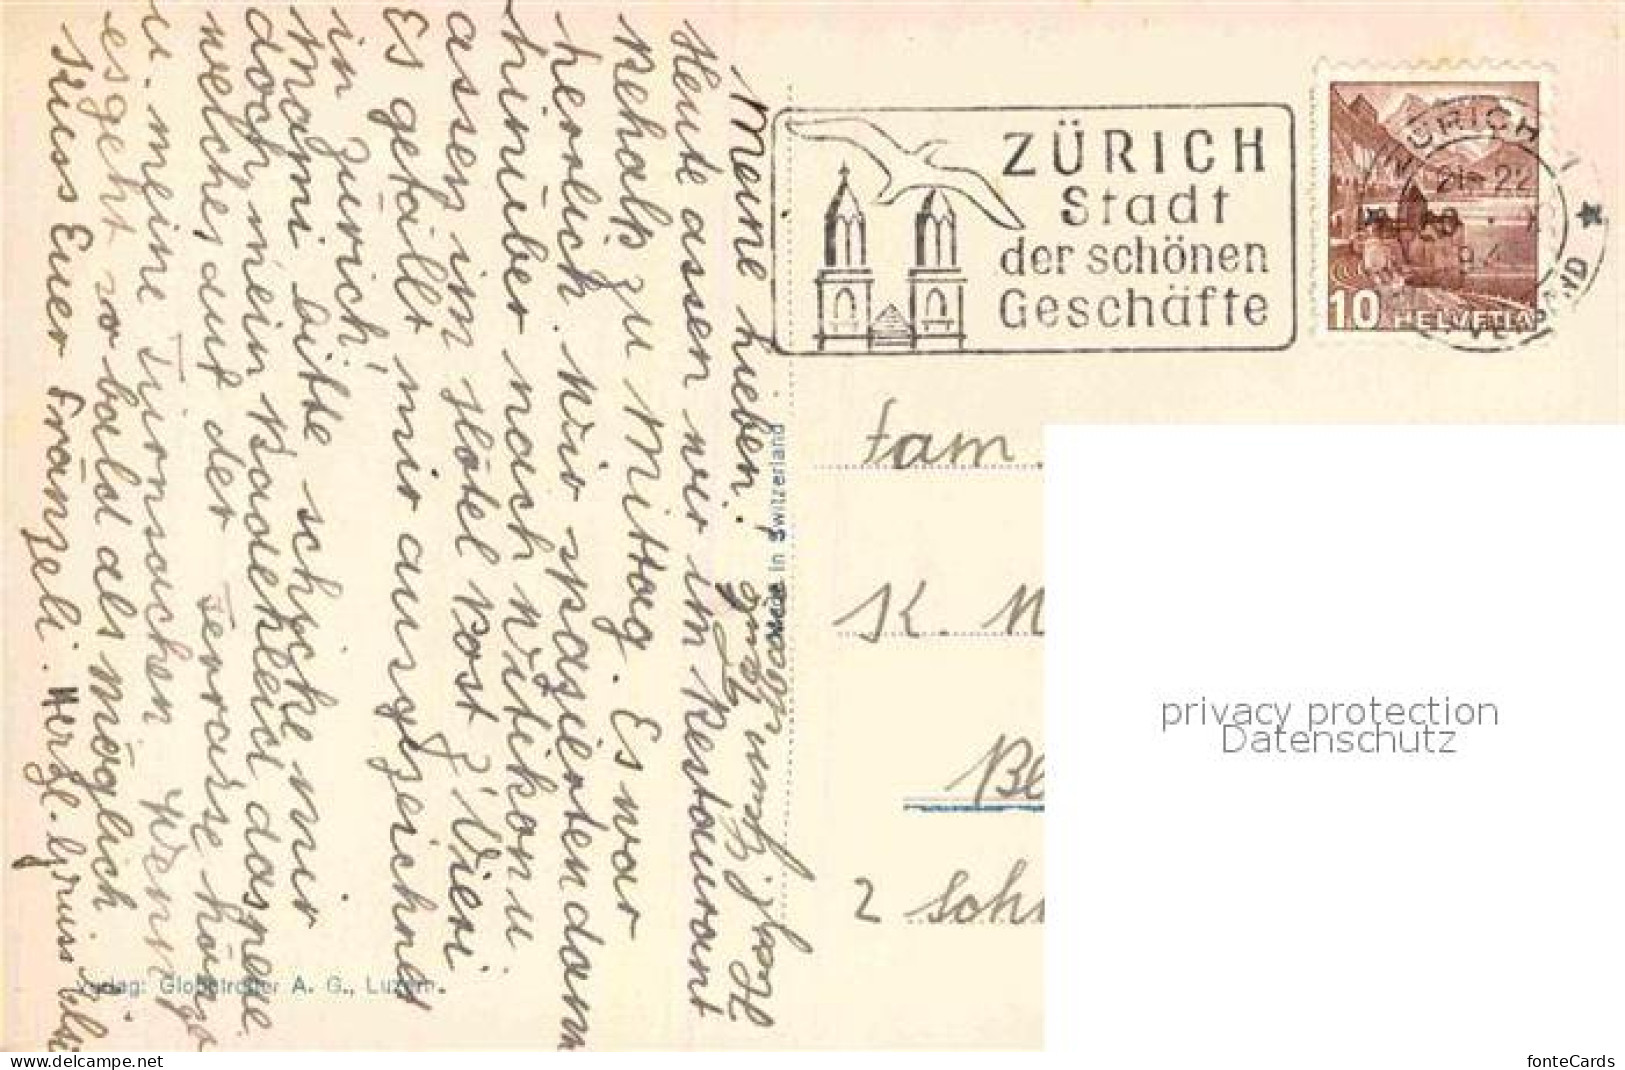 Meine Lieben!
Heute assen wir im Restaurant
Rehalp zu Mittag. Es war
herrlich. Wir spazierten dann
hinüber nach Witikon u.
assen im Hotel Post z'Vieri
Es gefällt mir ausgezeichnet
in Zürich!
Mami bitte schicke mir
doch mein Badekleid das neue
welches auf der Terrasse hängt
u. meine Turnsachen Wenn
es geht so bald als möglich.
Kuss Euer Fränzeli. Herzl. Gruss
Made in Switzerland
Verlag: Globetrotter A. G., Luzern.
ZÜRICH
Stadt
der schönen
Geschäfte
ZÜRICH 1
21-22
10 HELVETIA
Fam.
K.
2
privacy protection
Datenschutz
www.delcampe.net
fonteCards